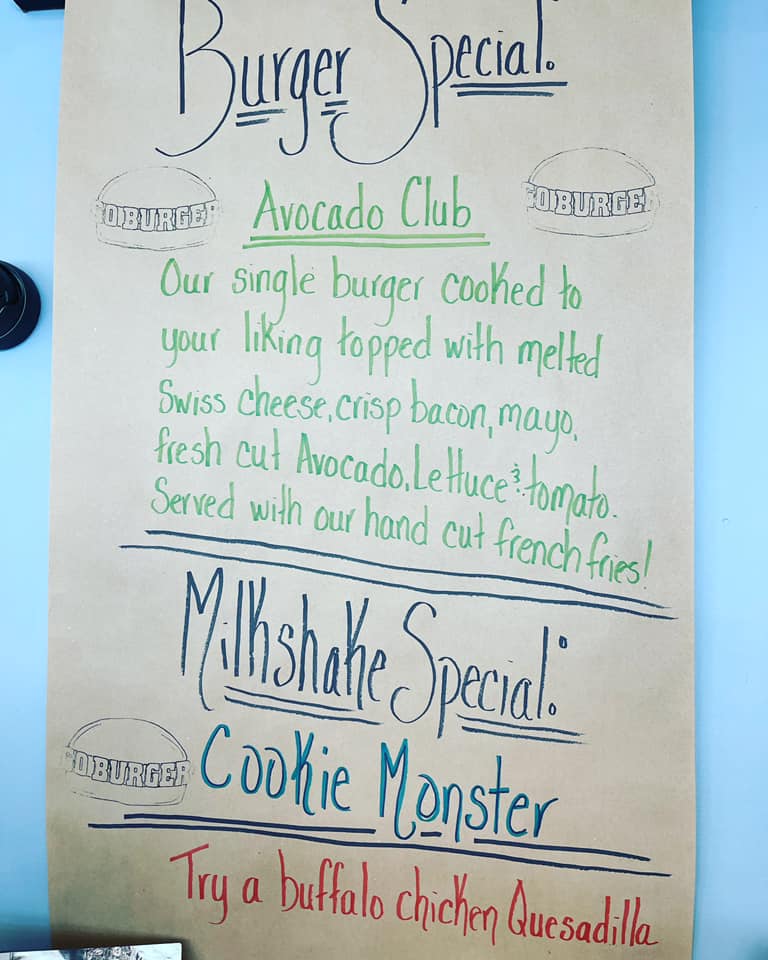 Burger Special:
GO BURGER
GO BURGER
Avocado Club
Our single burger cooked to
your liking topped with melted
Swiss cheese, crisp bacon, mayo,
fresh cut Avocado, Lettuce & tomato.
Served with our hand cut french fries!
Milkshake Special:
GO BURGER
Cookie Monster
Try a buffalo chicken Quesadilla